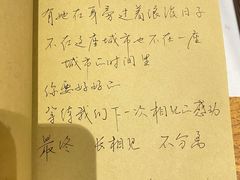 有她在耳旁过着浪漫日子
不在这座城市也不在一座
城市的时间里
你要好好的
等待我们下一次相见的感动
最终 长相见 不分离